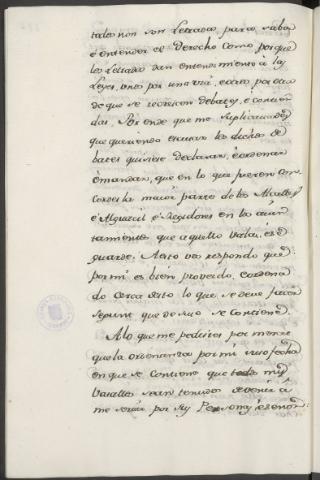 todos non son Letrados para saber
e entender el Derecho como porque
los Letrados dan entendimiento a las
Leyes, unos por una via, e otros por otra
de que se recrescen debates, e contien
das. Por ende que me suplicauades
que queriendo escusar los dichos de
bates quisiese declarar, e ordenar
e mandar, que en lo que fueren con
cordes la maior parte de los Alcaldes
e Alguacil e Regidores en los aiun
tamientos que aquello vala, e se
guarde. A esto vos respondo que
por mi es bien proveido, e ordena
do cerca desto lo que se deve facer
segunt que de suso se contiene.
A lo que me pedistes por merced
que la ordenanza por mi vuo fecha
en que se contiene que todos mis
Vasallos sean tenudos de venir á
me servir por sus Personas, e